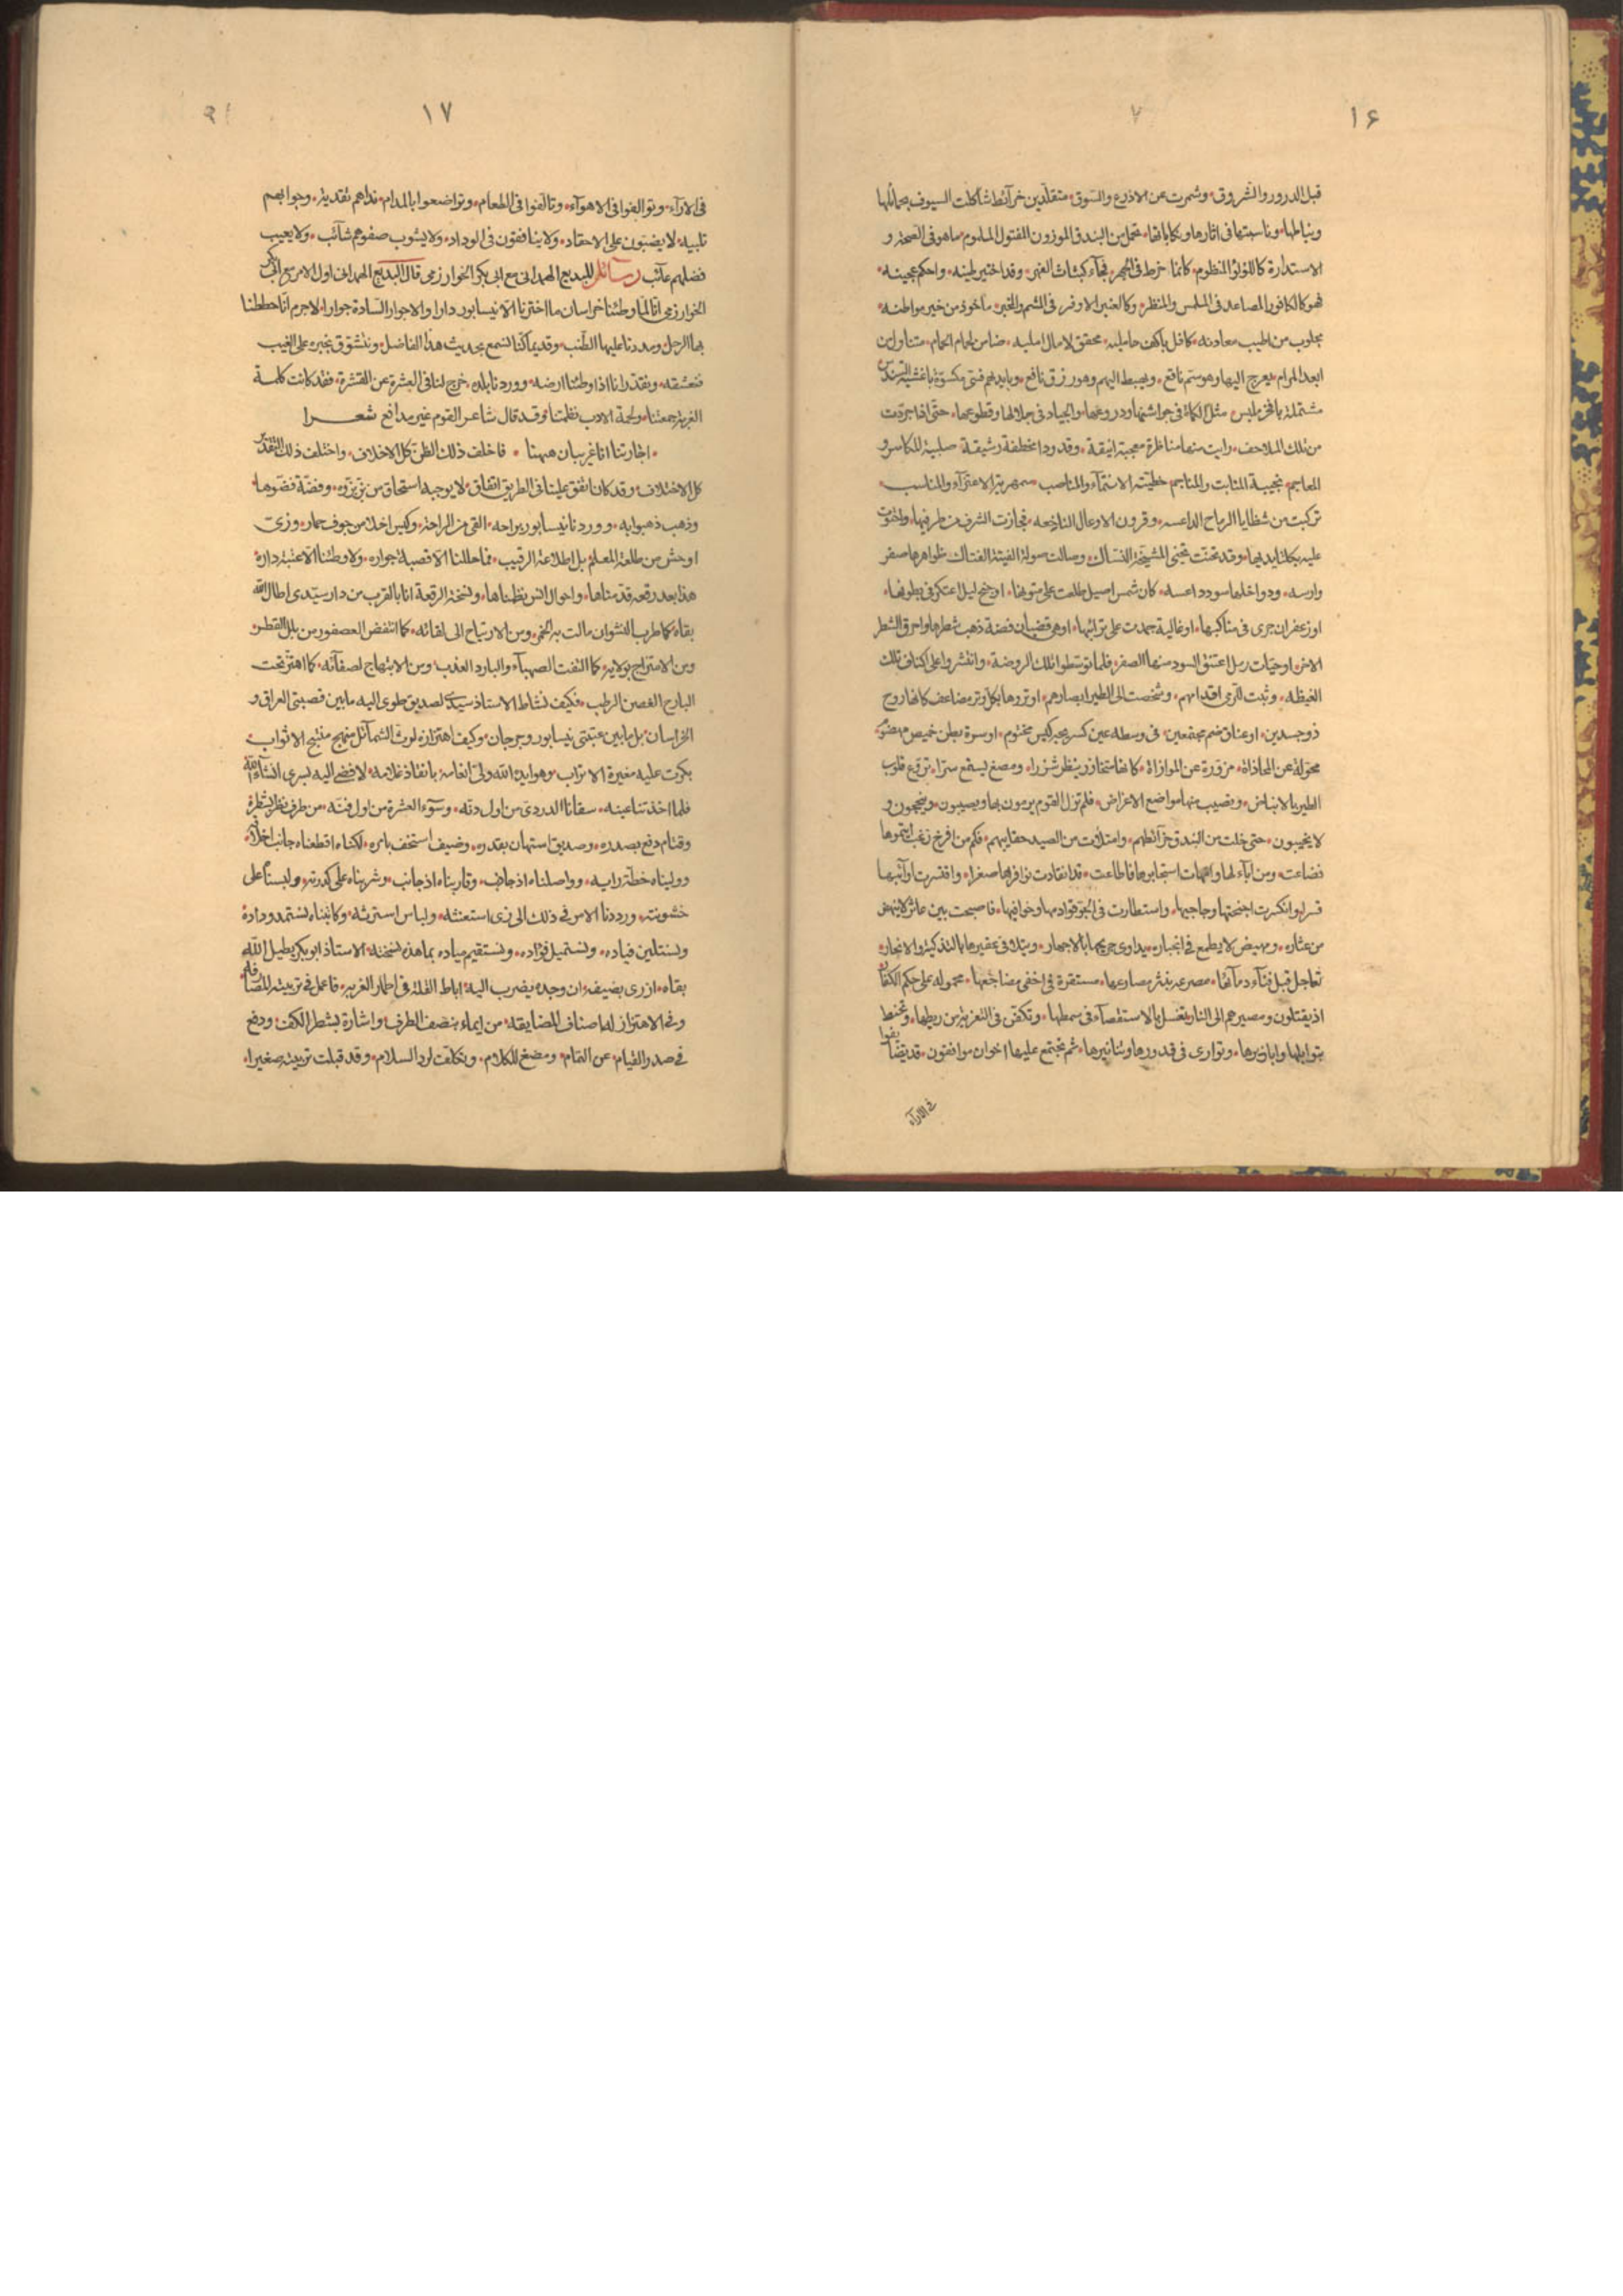 ١۶
٧
قبل الدرور والشروق وشمرت عن الاذرع والسوق متقلدين خرآئط شاكلت السيوف بحمائلها
ونياطها وناسبتها فى اثارها ونكاياتها تحمل من البندق الموزون المفتول الملموم ما هو فى الصحة و
الاستدارة كاللؤلؤ المنظوم كانما خرط فى الجهر فجآء كبنات الفهر وقد اختير طينه واحكم عجينه
فهو كالكافور المصاعد فى الملمس والمنظر وكالعنبر الاذفر فى الشم والمخبر ماخوذ من خير مواطنه
مجلوب من اطيب معادنه كافل باكف حامليه محقق لامال امليه ضامن لحمام الحمام متناول من
ابعد المرام يعرج اليها وهو سم ناقع ويهبط اليهم وهو رزق نافع وبايديهم قسى مكسوة باغشية السندس
مشتملة بافخر ملبس مثل الكماة فى جواشنها ودروعها والجياد فى جلالها وقطوعها حتى اذا جردت
من تلك الملاحف رايت منها مناظرة معجبة انيقة وقدودا مخطفة رشيقة صلبة المكاسر و
المعاجم نجيبة المنابت والمناجم خطيته الانتمآء والمناصب سمهرية الاعتزآء والمناسب
تركبت من شظايا الرماح الداعسه وقرون الاوعال الناخعه فحازت الشرف من طرفيها واحتوت
عليه بكلتا يديها وقد تحنت تحنى المشيخة النساك وصالت صولة الفتية الفتاك ظواهرها صفر
وارسه ودواخلها سود داعسه كان شمس اصيل طلعت على متونها او جنح ليل اعتكر فى بطونها
او زعفران جرى فى مناكبها او غالية جمدت على ترائبها او هى قضبان فضة ذهب شطرها واحرق الشطر
الاخر او حيات رمل اعتنق السود منها الصفر فلما توسطوا تلك الروضة وانتشروا على اكناف تلك
الغيظه وثبت للرمى اقدامهم وشخصت الى الطير ابصارهم اوتروها بكل وتر مضاعف كانها روح
ذو جسدين او عناق ضم مجتمعين فى وسطه عين كسرحبر كيس مختوم او سرة بطن خميص مهضوم
محولة عن المحاذاة مزورة عن الموازاة كانها متخازر ينظر شزرا ومصغ يستمع سرا تروع قلوب
الطير بالانباض وتصيب منها مواضع الاغراض فلم تزل القوم يرمون بها ويصيبون وينجحون و
لا يخيبون حتى خلت من البندق خرآئطهم وامتلات من الصيد حقايبهم فكم من افرخ زغب ايتموها
فضاعت ومن اباء لها وامهات استجابوها فاطاعت قد انقادت نوافرها صغرا واقتسرت اوآئبها
قسرا وانكسرت اجنحتها وجاجيها واستطارت فى الجو قوادمها وخوافيها فاصبحت بين عاثر لا ينهض
من عثاره ومهيض لا يطمع فى انجباره يداوى جريحها بالاجهاز ويتلافى عقيرها بالتذكية والانجاز
تعاجل قبل فنآء دمآئها مصرعه بنثر مصارعها مستقرة فى اخفى مضاجعها محموله على حكم الكفار
اذ يقتلون ومصيرهم الى النار يغسل بالاستقصآء فى سمطها وتكفن فى التعزية من ريطها وتحنط
بتوابلها وابازيرها وتوارى فى قدورها وتنانيرها ثم يجتمع عليها اخوان موافقون قد يضايفوا
فى الارآء
١٧
فى الارآء وتوالفوا فى الاهوآء وتالفوا فى الطعام وتواضعوا بالمدام نداهم تفدية وجوابهم
تلبية لا يضبون على الاحقاد ولا ينافقون فى الوداد ولا يشوب صفوهم شآئب ولا يعيب
فضلهم عآئب رسآئل للبديع الهمدانى مع ابى بكر الخوارزمى قال البديع الهمدانى اول الامر مع ابى بكر
الخوارزمى انا لما وطئنا خراسان ما اخترنا الا نيسابور دارا والا جوار السادة جوارا لا جرم انا حططنا
بها الرحل ومددنا عليها الطنب وقديما كنا نسمع بحديث هذا الفاضل ونتشوق بخبره على الغيب
فنعشقه ونقدر انا اذا وطئنا ارضه ووردنا بلده خرج لنا فى العشرة عن القشرة فقد كانت كلمة
الغربة جمعتنا ولحمة الادب نظمتنا وقد قال شاعر القوم غير مدافع شعـــرا
اجارتنا انا غريبان ههنا فاخلف ذلك الظن كل الاخلاف واختلف ذلك التقدير
كل الاختلاف وقد كان اتفق علينا فى الطريق اتفاق لا يوجبه استحقاق من بزة بزوه وفضة فضوها
وذهب ذهبوا به ووردنا نيسابور براحه انقى من الراحة وكيس اخلا من جوف حمار وزى
اوحش من طلعة المعلم بل اطلاعة الرقيب فما حللنا الا قصبة جواره ولا وطئنا الا عتبة داره
هذا بعد رقعه قدمناها واحوال انس نظمناها ونسخة الرقعة انا بالقرب من دار سيدى اطال الله
بقاه كما طرب النشوان مالت به الخمر ومن الارتياح الى لقائه كما انتفض العصفور من بلل القطر
ومن الامتزاج بولايه كما التقت الصهبآء والبارد العذب ومن الابتهاج لصفآئه كما اهتز تحت
البارح الغصن الرطب فكيف نشاط الاستاذ سيدى لصديق طوى اليه مابين قصبتى العراق و
الخراسان بل مابين عتبتى نيسابور وجرجان وكيف اهتزازه لوث الشمآئل منهج منتهج الاثواب
بكرت عليه مغيرة الاعراب وهو ايده الله ولى انعامه بانفاذ غلامه لافضى اليه بسرى انشاء الله
فلما اخذتنا عينه سقانا الدردى من اول دنه وسوء العشرة من اول فنه من طرف نظر بشطره
وقيام دفع بصدره وصديق استهان بقدره وضيف استخف بامره لكنا اقطعناه جانب اخلاقه
ووليناه خطة رايه وواصلناه اذ جانب وقاربناه اذ جانب وشربناه على كدرته ولبسنا على
خشونته ورددنا الامر فى ذلك الى زى استغثه ولباس استرثه وكاتبناه نستمد وداده
ونستلين قياده ونستميل فؤاده ونستقيم مياده بما هذه نسخته الاستاذ ابو بكر يطيل الله
بقاه ازرى بضيفه ان وجده يضرب اليه اباط القلة فى اطمار الغربه فاعمل فى ترتيبه المصارفه
وفى الاهتزاز له اصناف المضايقه من ايماء بنصف الطرف واشارة بشطر الكف ودفع
فى صدر القيام عن التمام ومضغ للكلام وتكلف لرد السلام وقد قبلت ترتيبه صغيرا